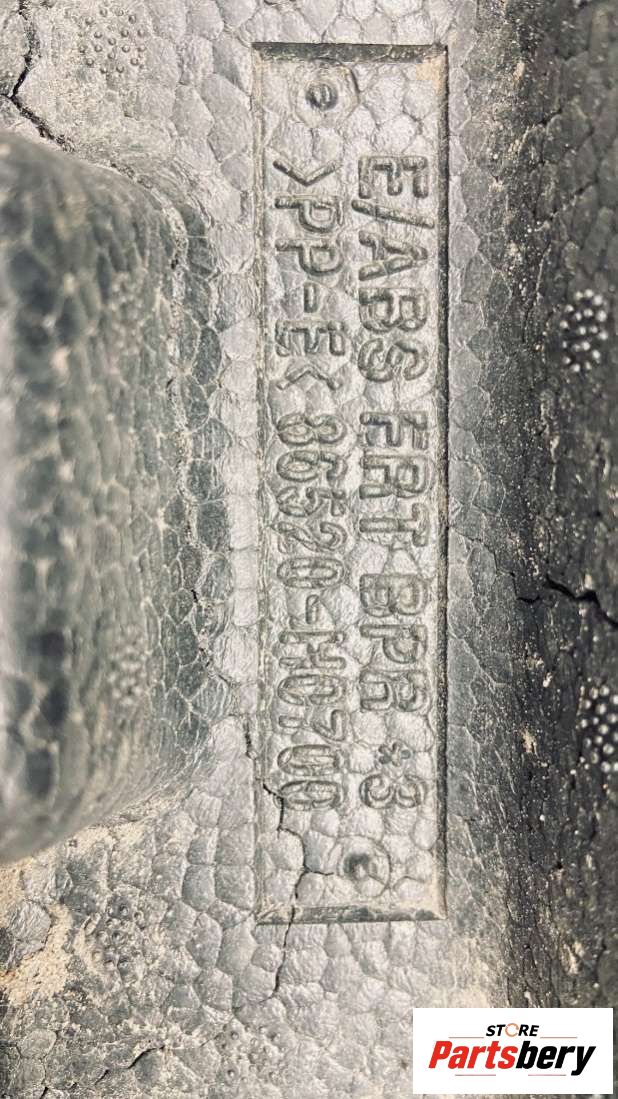 E/ABS FRT BPR *3
>PP-E< 86520-H0700
STORE
Partsbery